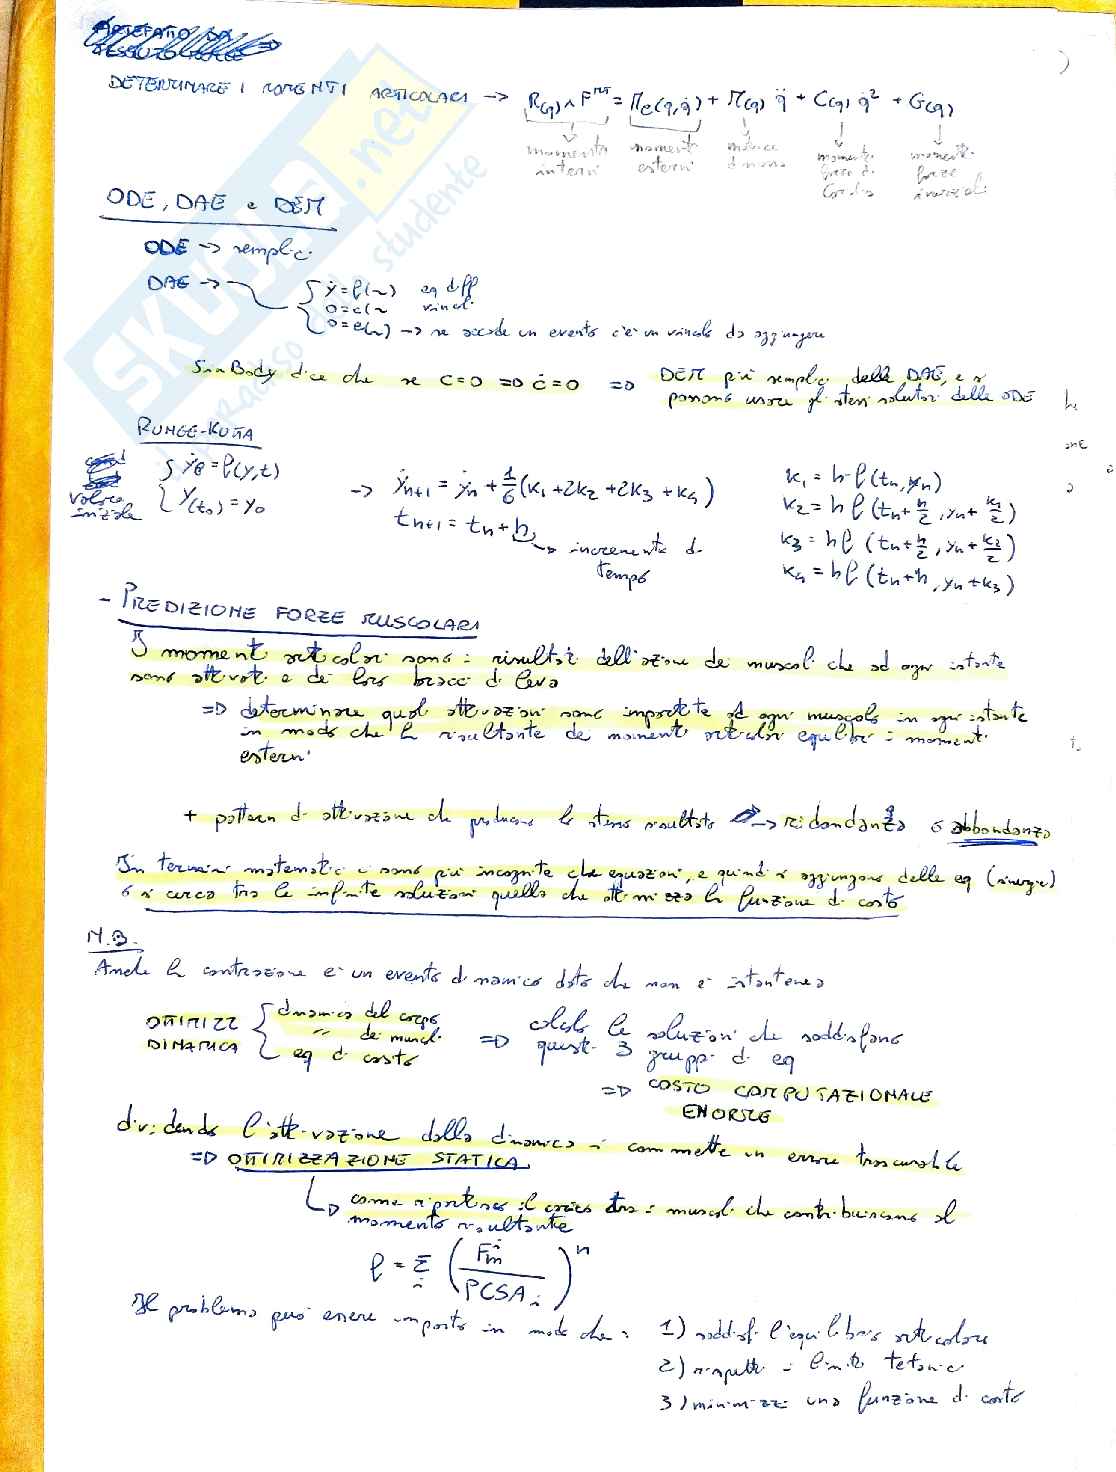 ARTEFATTO DA
TESSUTO MOLLE =>
DETERMINARE I MOMENTI ARTICOLARI -> R(q) ∧ F^MT = M_e(q,q̇) + M(q) q̈ + C(q) q̇² + G(q)
momento interni
momenti esterni
matrice di massa
momenti forze di Coriolis
momenti forze inerziali
SKUOLA.net
il paradiso dello studente
ODE, DAE e DEM
ODE -> semplici
DAE -> { ẏ = f(~) eq diff
0 = c(~ vincoli
0 = e(~) -> se accade un evento c'è un vincolo da aggiungere
SimBody dice che se C=0 => ċ=0 => DEM più semplici delle DAE, e si
possono usare gli stessi solutori delle ODE
RUNGE-KUTTA
valore iniziale
{ ẏ = f(y,t)
y(t₀) = y₀
-> ẏn+1 = ẏn + 1/6 (k1 + 2k2 + 2k3 + k4)
tn+1 = tn + h -> incremento di tempo
k1 = h·f(tn, yn)
k2 = h f (tn + h/2, yn + k1/2)
k3 = h f (tn + h/2, yn + k2/2)
k4 = h f (tn + h, yn + k3)
- PREDIZIONE FORZE MUSCOLARI
I momenti articolari sono i risultati dell'azione dei muscoli che ad ogni istante
sono attivati e dei loro bracci di leva
=> determinare quali attivazioni sono impartite ad ogni muscolo in ogni istante
in modo che la risultante dei momenti articolari equilibri i momenti
esterni
+ pattern di attivazione che producono lo stesso risultato -> ridondanza o abbondanza
In termini matematici ci sono più incognite che equazioni, e quindi si aggiungono delle eq (sinergie)
o si cerca tra le infinite soluzioni quella che ottimizza la funzione di costo
N.B.
Anche la contrazione è un evento dinamico dato che non è istantanea
OTTIMIZZ DINAMICA { dinamica del corpo
" dei muscoli
eq di costo
=> calcolo le soluzioni che soddisfano
questi 3 gruppi di eq
=> COSTO COMPUTAZIONALE
ENORME
dividendo l'attivazione dalla dinamica si commette un errore trascurabile
=> OTTIMIZZAZIONE STATICA
-> come ripartisco il carico tra i muscoli che contribuiscono al
momento risultante
f = Σi (F^i_m / PCSA_i)^n
Il problema può essere imposto in modo che: 1) soddisfi l'equilibrio articolare
2) rispetti i limiti tetanici
3) minimizzi una funzione di costo